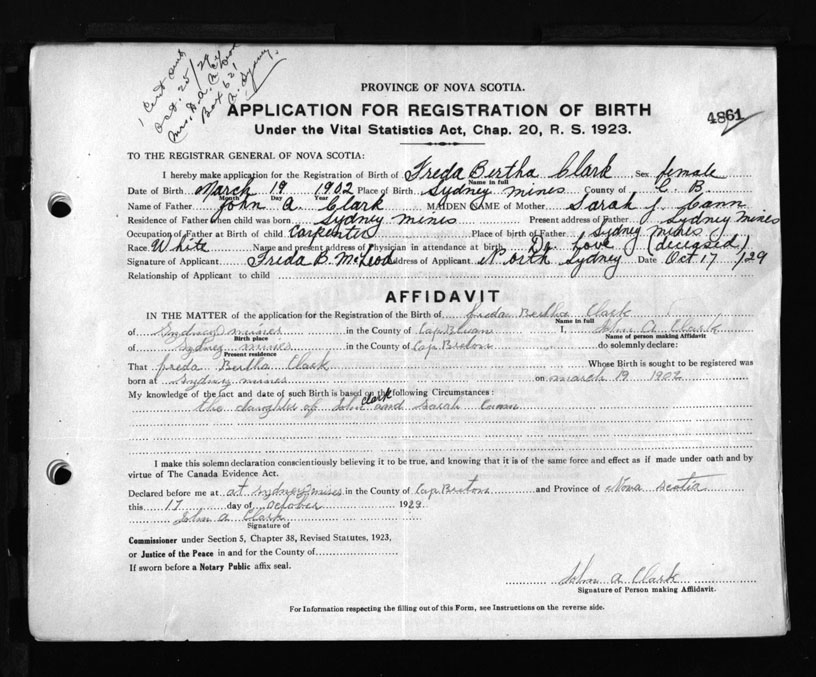 1 Cert sent
Oct. 25/29
Mrs. D. A.
Box 62
N. Sydney
PROVINCE OF NOVA SCOTIA.
APPLICATION FOR REGISTRATION OF BIRTH
4861
Under the Vital Statistics Act, Chap. 20, R. S. 1923.
TO THE REGISTRAR GENERAL OF NOVA SCOTIA:
I hereby make application for the Registration of Birth of Freda Bertha Clark Sex female
Name in full
Date of Birth March 19 1902 Place of Birth Sydney mines County of C. B.
Month Day Year
Name of Father John A. Clark MAIDEN NAME of Mother Sarah J. Cann
Residence of Father when child was born Sydney mines Present address of Father Sydney Mines
Occupation of Father at Birth of child Carpenter Place of birth of Father Sydney mines
Race White Name and present address of Physician in attendance at birth Dr. Love (deceased)
Signature of Applicant Freda B. McLeod Address of Applicant North Sydney Date Oct 17 /29
Relationship of Applicant to child
AFFIDAVIT
IN THE MATTER of the application for the Registration of the Birth of freda Bertha Clark
Name in full
of Sydney mines in the County of Cap I, John A Clark
Birth place Name of person making Affidavit
of Sydney mines in the County of Cap Breton do solemnly declare:
Present residence
That freda Bertha Clark Whose Birth is sought to be registered was
born at Sydney mines on march 19 1902
My knowledge of the fact and date of such Birth is based on the following Circumstances:
the daughter of John Clark and Sarah Cann
I make this solemn declaration conscientiously believing it to be true, and knowing that it is of the same force and effect as if made under oath and by
virtue of The Canada Evidence Act.
Declared before me at at Sydney mines in the County of Cap Breton and Province of Nova Scotia
this 17 day of October 1929
John A Clark
Signature of
Commissioner under Section 5, Chapter 38, Revised Statutes, 1923,
or Justice of the Peace in and for the County of
If sworn before a Notary Public affix seal.
John A Clark
Signature of Person making Affidavit.
For Information respecting the filling out of this Form, see Instructions on the reverse side.